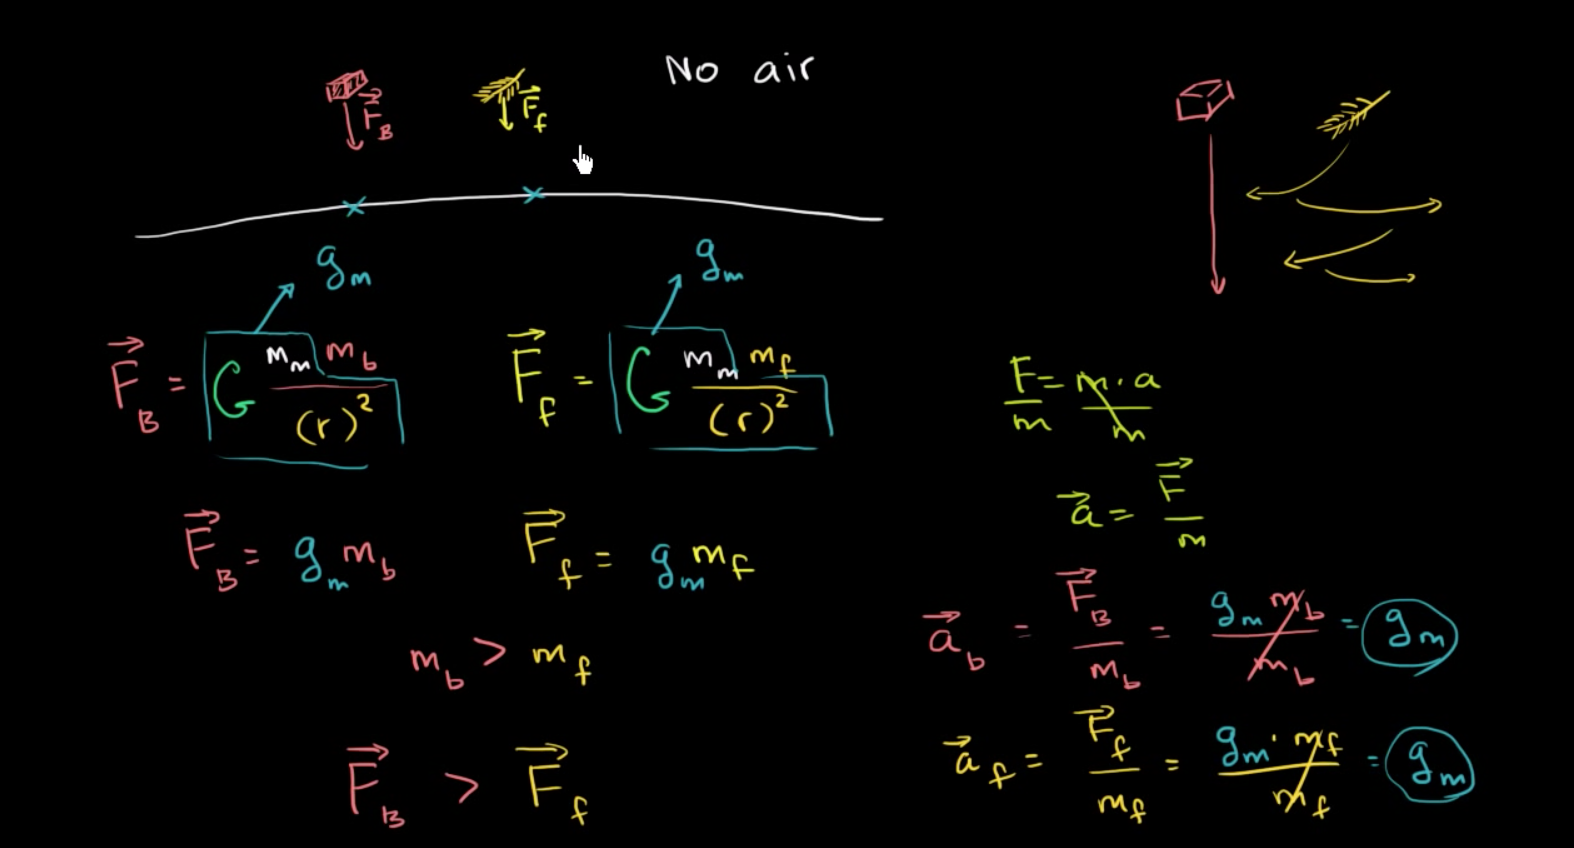 No air
F⃗_B
F⃗_f
g_m
g_m
F⃗_B = G m_m m_b / (r)²
F⃗_f = G m_m m_f / (r)²
F/m = m·a/m
a⃗ = F⃗/m
F⃗_B = g_m m_b
F⃗_f = g_m m_f
m_b > m_f
F⃗_B > F⃗_f
a⃗_b = F⃗_B/m_b = g_m m_b/m_b = g_m
a⃗_f = F⃗_f/m_f = g_m · m_f/m_f = g_m